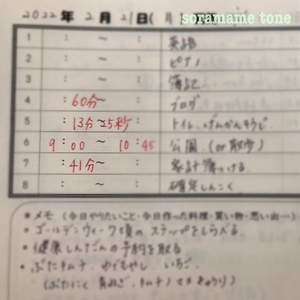 soramame tone
2022年 2月 21日(月)
: 〜 : 英語
: 〜 : ピアノ
: 〜 : 簿記
4 60分〜 : ブログ
5 : 13分〜25秒 トイレ、げんかんそうじ
6 9:00 〜 10:45 公園 (or 散歩)
7 : 41分〜 : 家計簿つける
8 : 〜 : 確定しんこく
*メモ (今日やりたいこと・今日作った料理・買い物・思い出…)
・ゴールデンウィーク頃のステップをしらべる
・健康しんだんの予約を取る
・ぶたキムチ、ゆでもやし、いちご、
(ぶたにく 青ねぎ、キムチ)